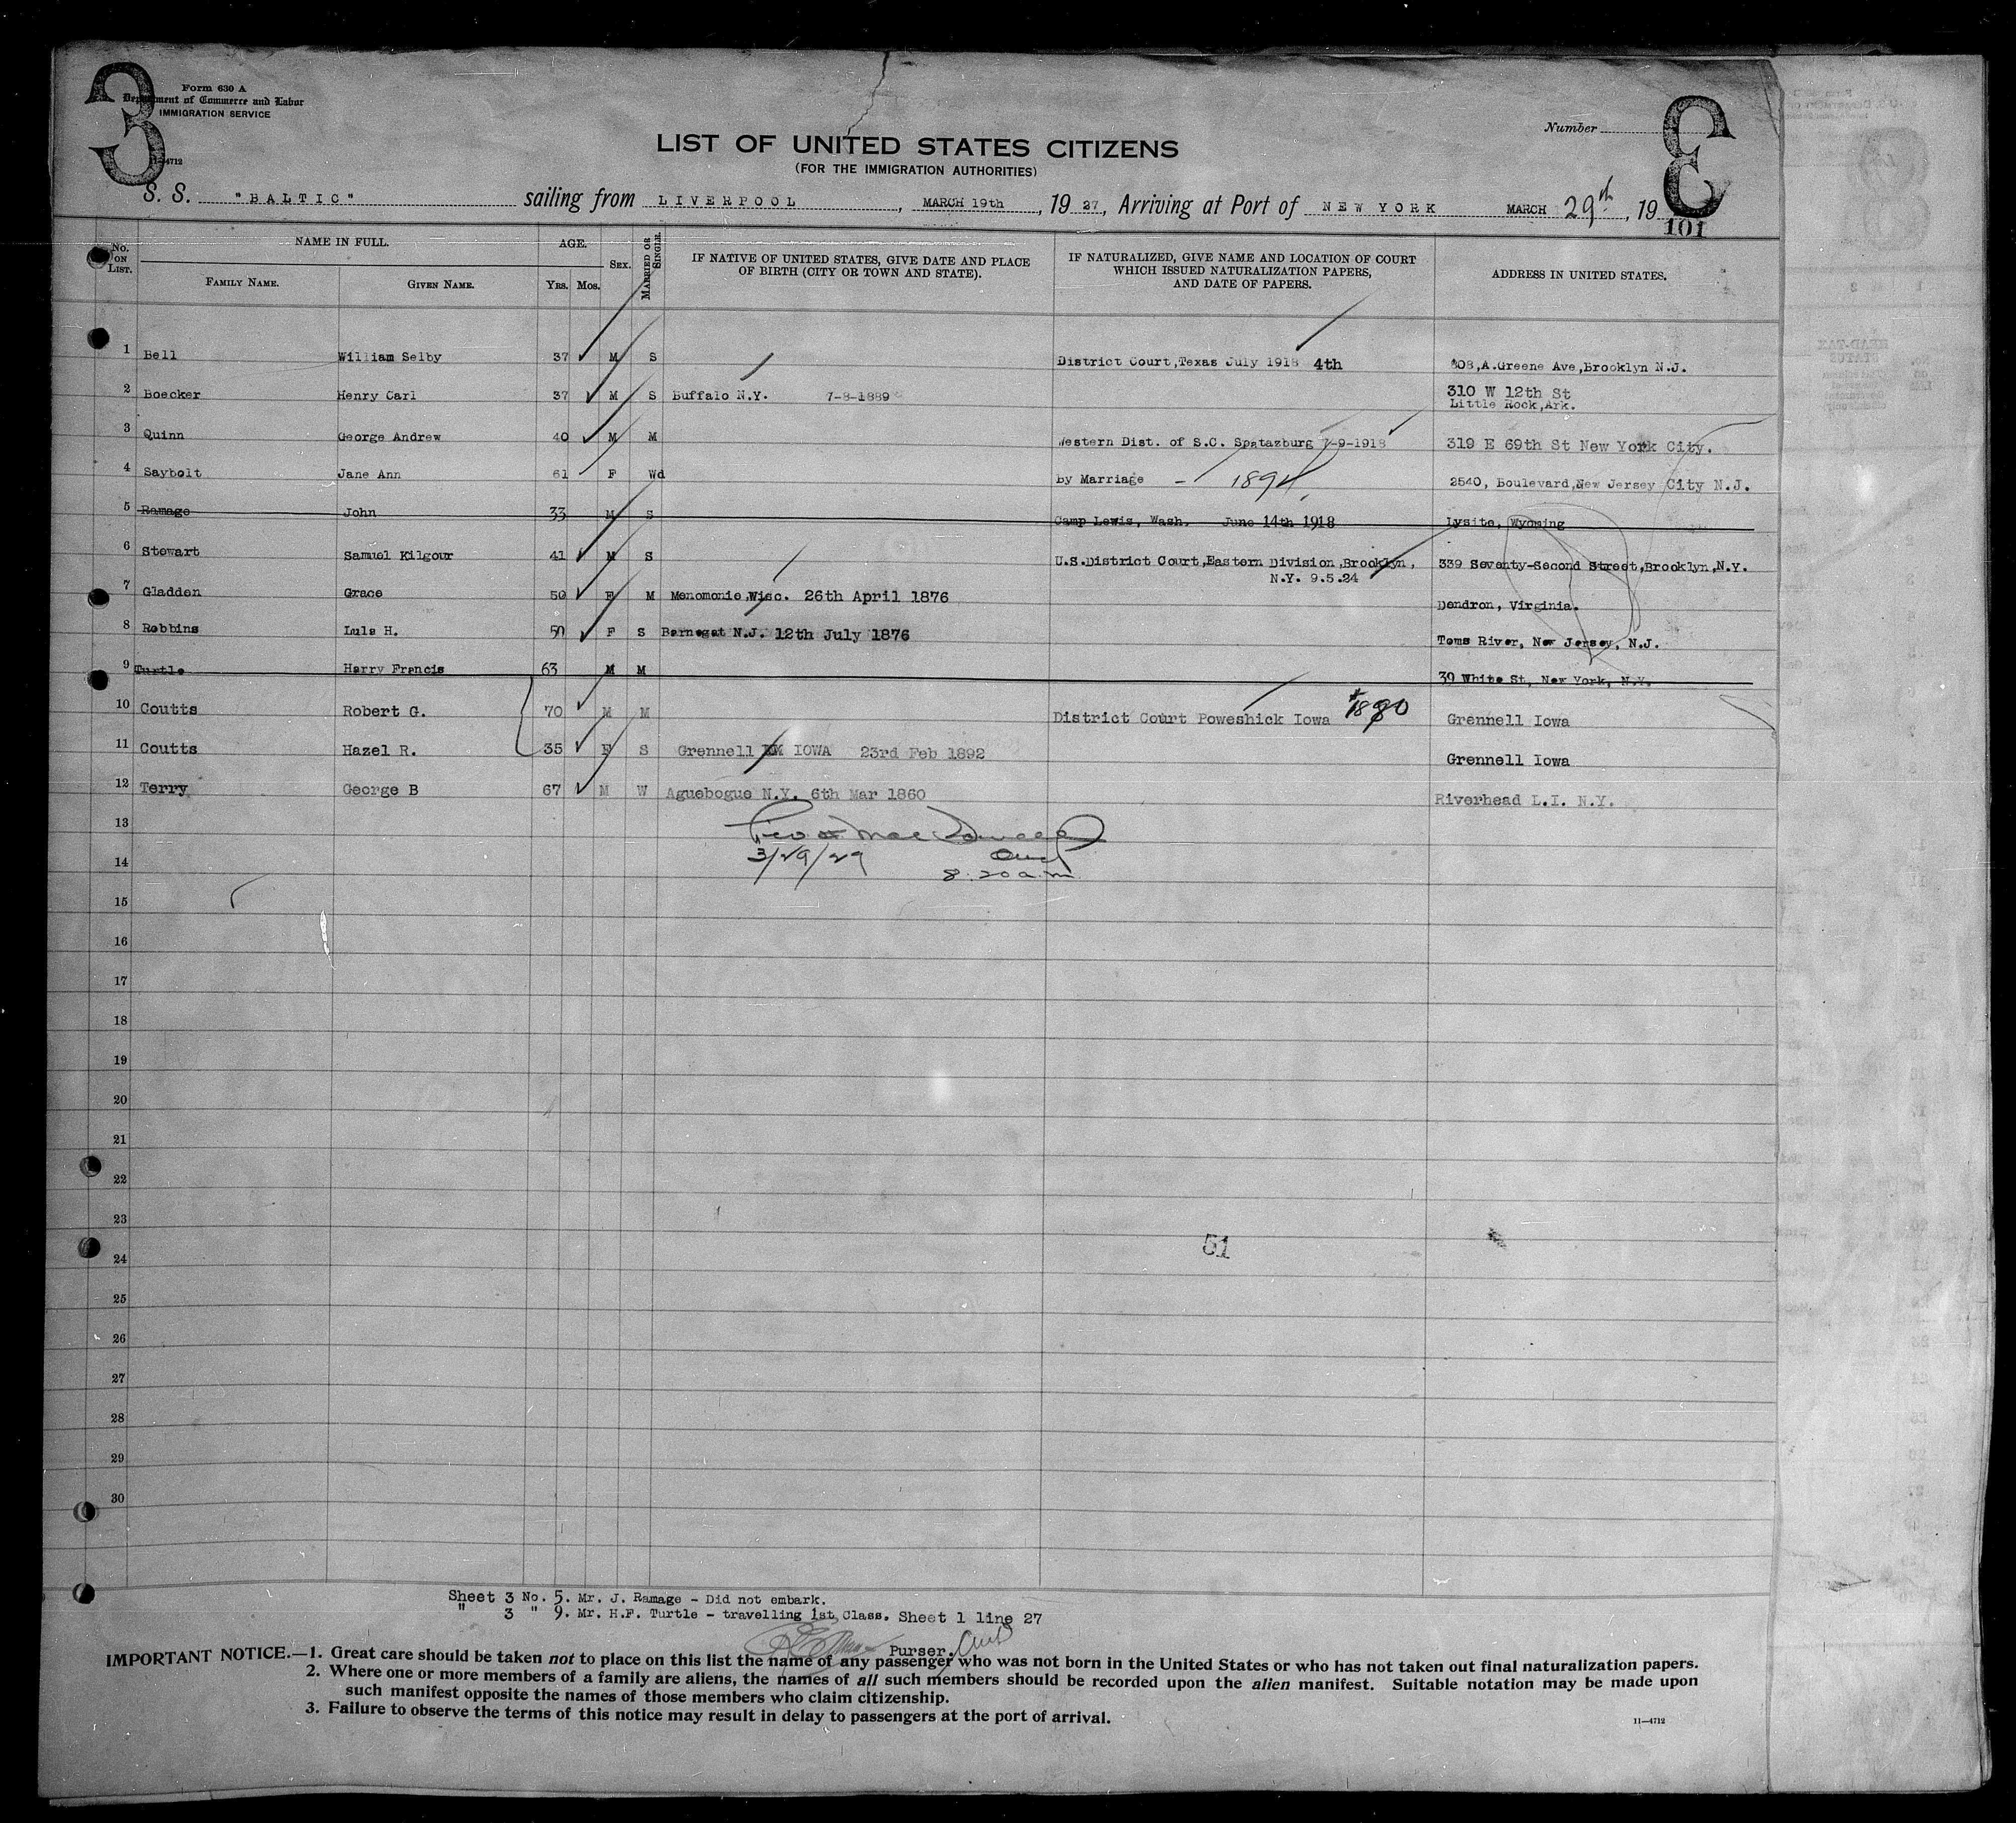 3
Form 630 A
Department of Commerce and Labor
IMMIGRATION SERVICE
11—4712
Number
3
3
LIST OF UNITED STATES CITIZENS
(FOR THE IMMIGRATION AUTHORITIES)
S. S. "BALTIC" sailing from LIVERPOOL, MARCH 19th, 1927, Arriving at Port of NEW YORK MARCH 29th, 19
101
No. ON LIST. NAME IN FULL. AGE. SEX. MARRIED OR SINGLE. IF NATIVE OF UNITED STATES, GIVE DATE AND PLACE OF BIRTH (CITY OR TOWN AND STATE). IF NATURALIZED, GIVE NAME AND LOCATION OF COURT WHICH ISSUED NATURALIZATION PAPERS, AND DATE OF PAPERS. ADDRESS IN UNITED STATES.
FAMILY NAME. GIVEN NAME. YRS. MOS.
1 Bell William Selby 37 M S District Court,Texas July 1918 4th 408,A.Greene Ave,Brooklyn N.J.
2 Boecker Henry Carl 37 M S Buffalo N.Y. 7-8-1889 310 W 12th St
Little Rock,Ark.
3 Quinn George Andrew 40 M M Western Dist. of S.C. Spatazburg 7-9-1918 319 E 69th St New York City.
4 Saybolt Jane Ann 61 F Wd by Marriage - 1894. 2540, Boulevard,New Jersey City N.J.
5 Ramage John 33 M S Camp Lewis, Wash. June 14th 1918 Lysite, Wyoming
6 Stewart Samuel Kilgour 41 M S U.S.District Court,Eastern Division,Brooklyn, 339 Seventy-Second Street,Brooklyn,N.Y.
N.Y. 9.5.24
7 Gladden Grace 50 F M Menomonie,Wisc. 26th April 1876 Dendron, Virginia.
8 Robbins Lula H. 50 F S Barnegat N.J. 12th July 1876 Toms River, New Jersey, N.J.
9 Turtle Harry Francis 63 M M 39 White St, New York, N.Y.
10 Coutts Robert G. 70 M M District Court Poweshick Iowa 1880 Grennell Iowa
11 Coutts Hazel R. 35 F S Grennell IOWA 23rd Feb 1892 Grennell Iowa
12 Terry George B 67 M W Aguebogue N.Y. 6th Mar 1860 Riverhead L.I. N.Y.
13
3/29/29
14
8.20 a.m.
15
16
17
18
19
20
21
22
23
51
24
25
26
27
28
29
30
Sheet 3 No. 5. Mr. J. Ramage - Did not embark.
" 3 " 9. Mr. H.F. Turtle - travelling 1st Class. Sheet 1 line 27
Purser.
IMPORTANT NOTICE.—1. Great care should be taken not to place on this list the name of any passenger who was not born in the United States or who has not taken out final naturalization papers.
2. Where one or more members of a family are aliens, the names of all such members should be recorded upon the alien manifest. Suitable notation may be made upon
such manifest opposite the names of those members who claim citizenship.
3. Failure to observe the terms of this notice may result in delay to passengers at the port of arrival.
11—4712